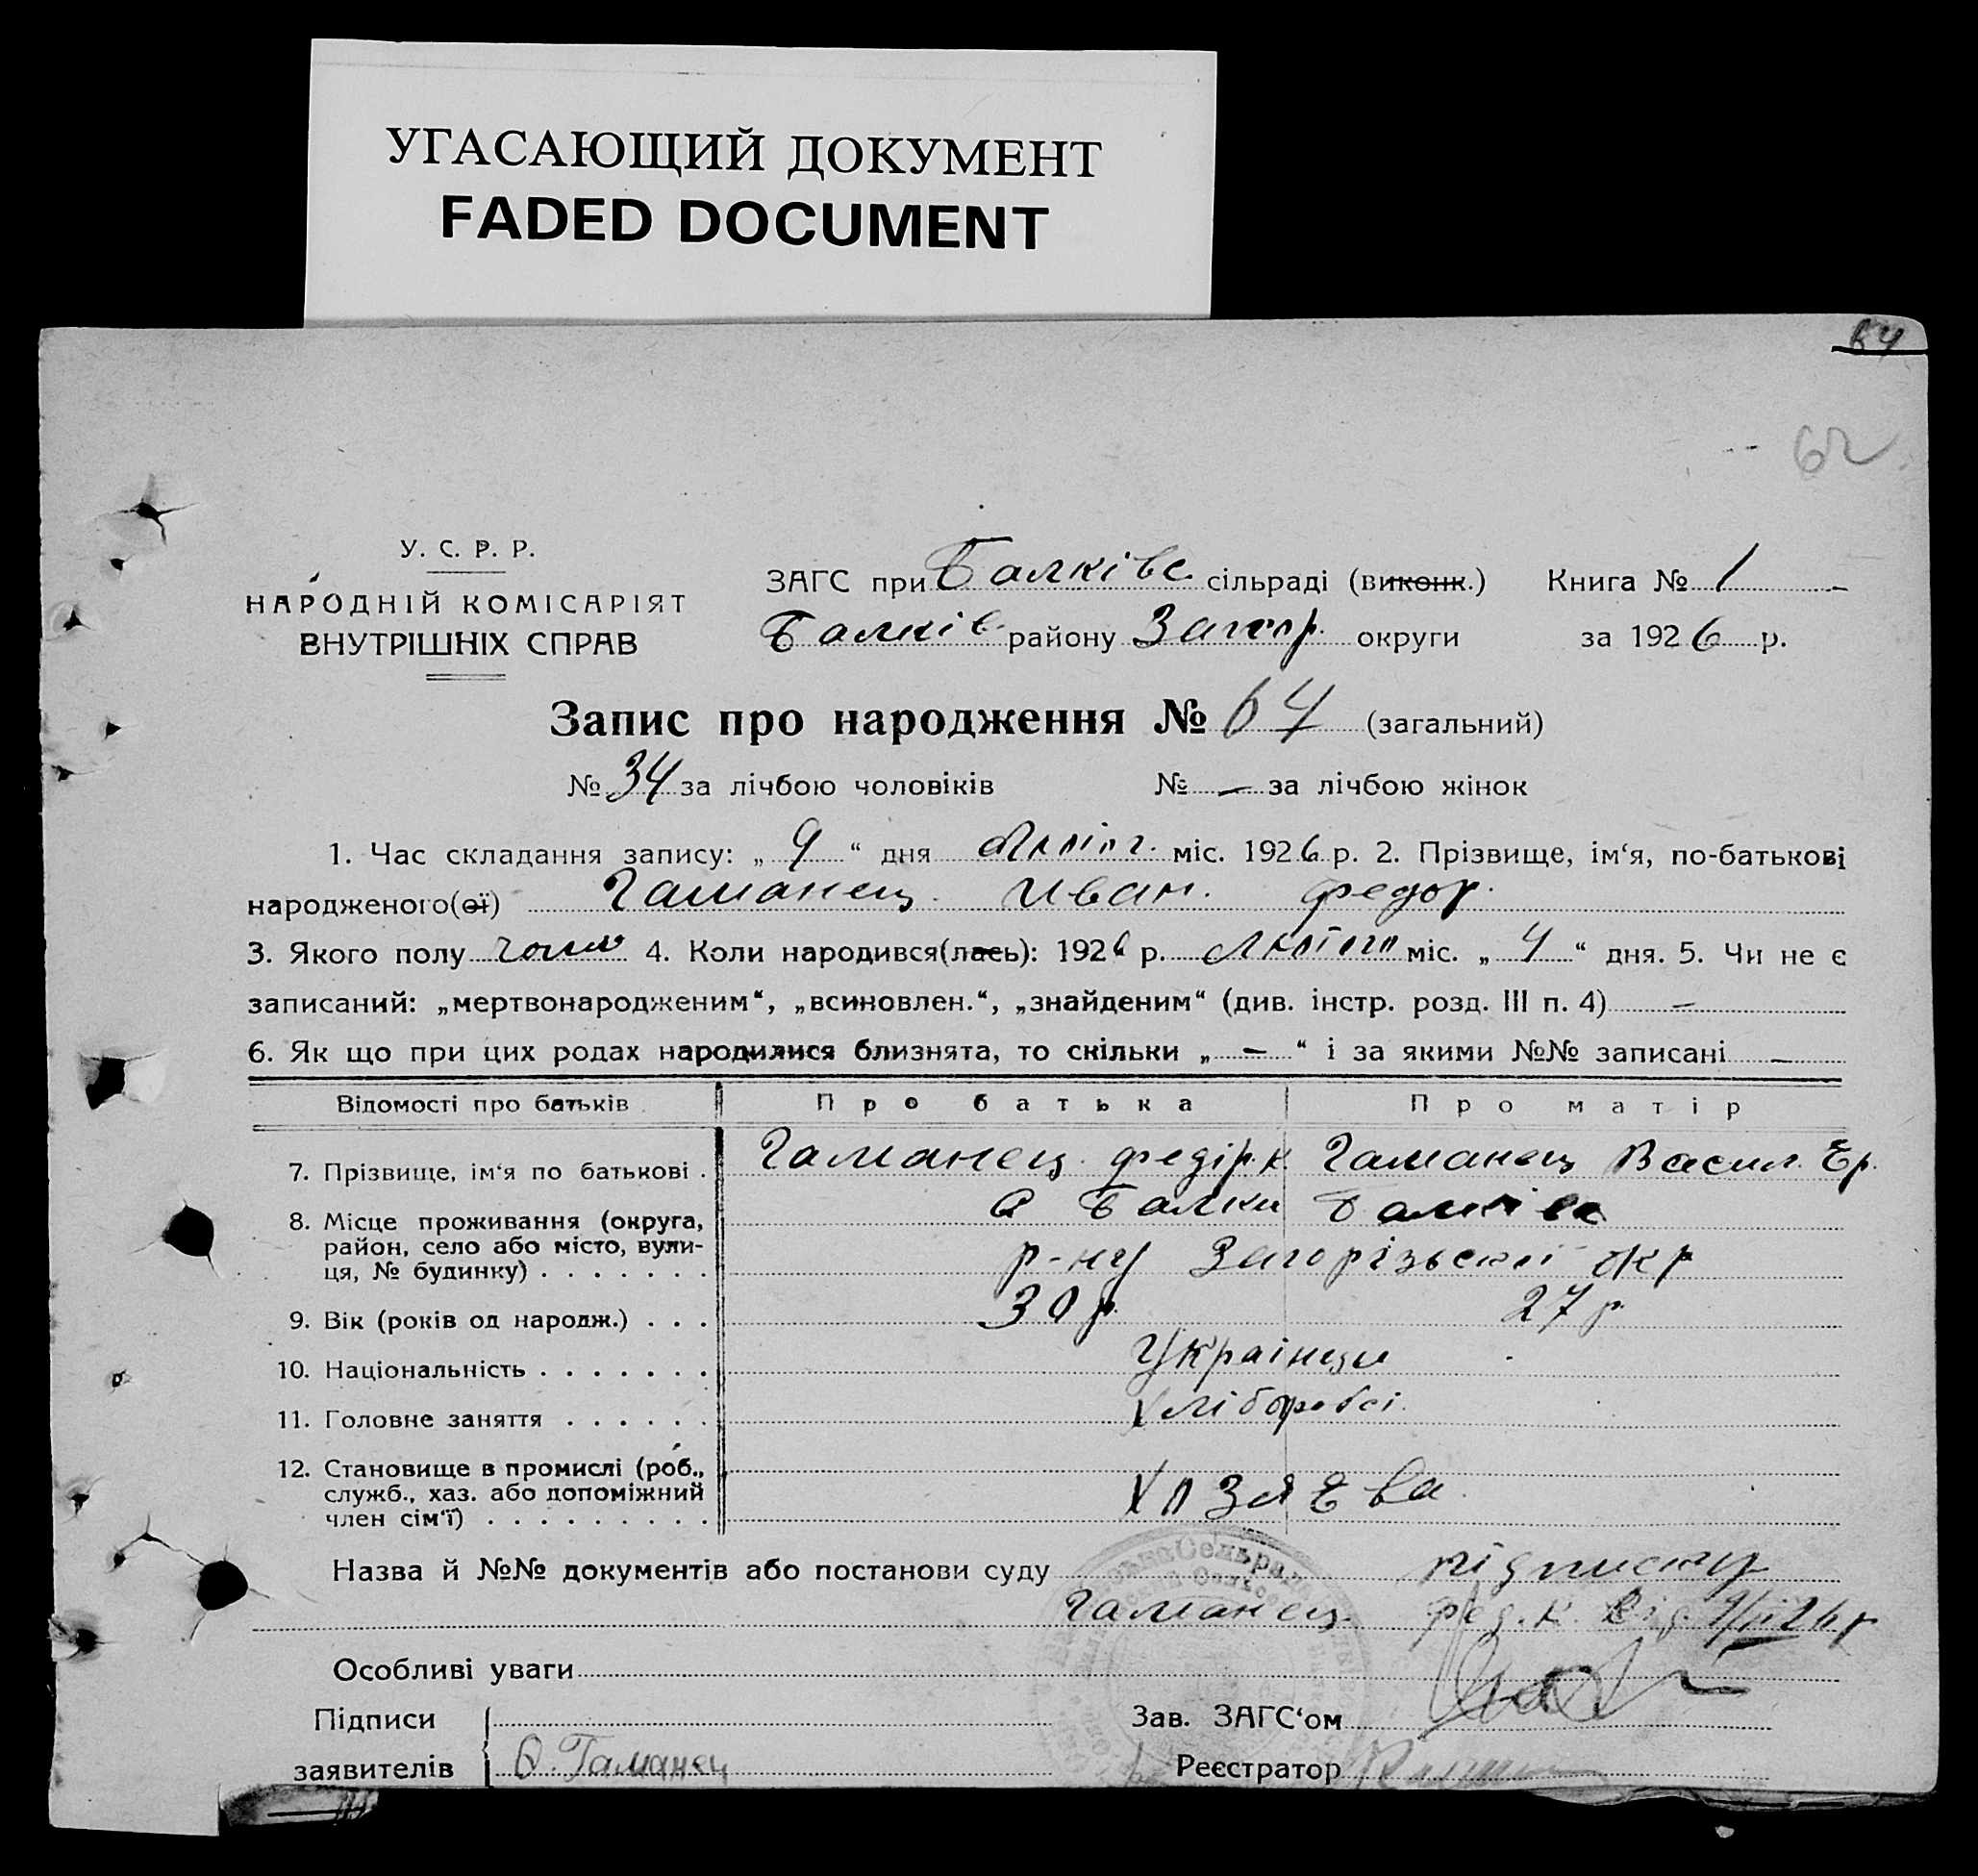 УГАСАЮЩИЙ ДОКУМЕНТ
FADED DOCUMENT
64
62
У. С. Р. Р.
НАРОДНІЙ КОМІСАРІЯТ
ВНУТРІШНІХ СПРАВ
ЗАГС при Балківс. сільраді (виконк.) Книга № 1
Балків. району Запор. округи за 1926 р.
Запис про народження № 64 (загальний)
№ 34 за лічбою чоловіків № — за лічбою жінок
1. Час складання запису: „ 9 “ дня Лютог. міс. 1926 р. 2. Прізвище, ім‘я, по-батькові
народженого(ої) Гаманец. Иван. Федор.
3. Якого полу чолов 4. Коли народився(лась): 1926 р. Лютого міс. „ 4 “ дня. 5. Чи не є
записаний: „мертвонародженим“, „всиновлен.“, „знайденим“ (див. інстр. розд. III п. 4) —
6. Як що при цих родах народилися близнята, то скільки „ — “ і за якими №№ записані —
Відомості про батьків Про батька Про матір
7. Прізвище, ім‘я по батькові . Гаманец. Федір. К. Гаманец Васил. Ер.
8. Місце проживання (округа, с Балки Балківс
район, село або місто, вули-
ця, № будинку) . . . . . . . р-ну Запорізьскої окр
9. Вік (років од народж.) . . . 30 р. 27 р.
10. Національність . . . . . . . Українци
11. Головне заняття . . . . . . Хліборобсі.
12. Становище в промислі (роб.,
служб., хаз. або допоміжний Хозяева
член сім‘ї) . . . . . . . . .
Назва й №№ документів або постанови суду підписку
Гаманец. Фед. К. від. 9/II 26 р
Особливі уваги
Підписи
Зав. ЗАГС‘ом
заявителів Ф. Гаманец Реєстратор